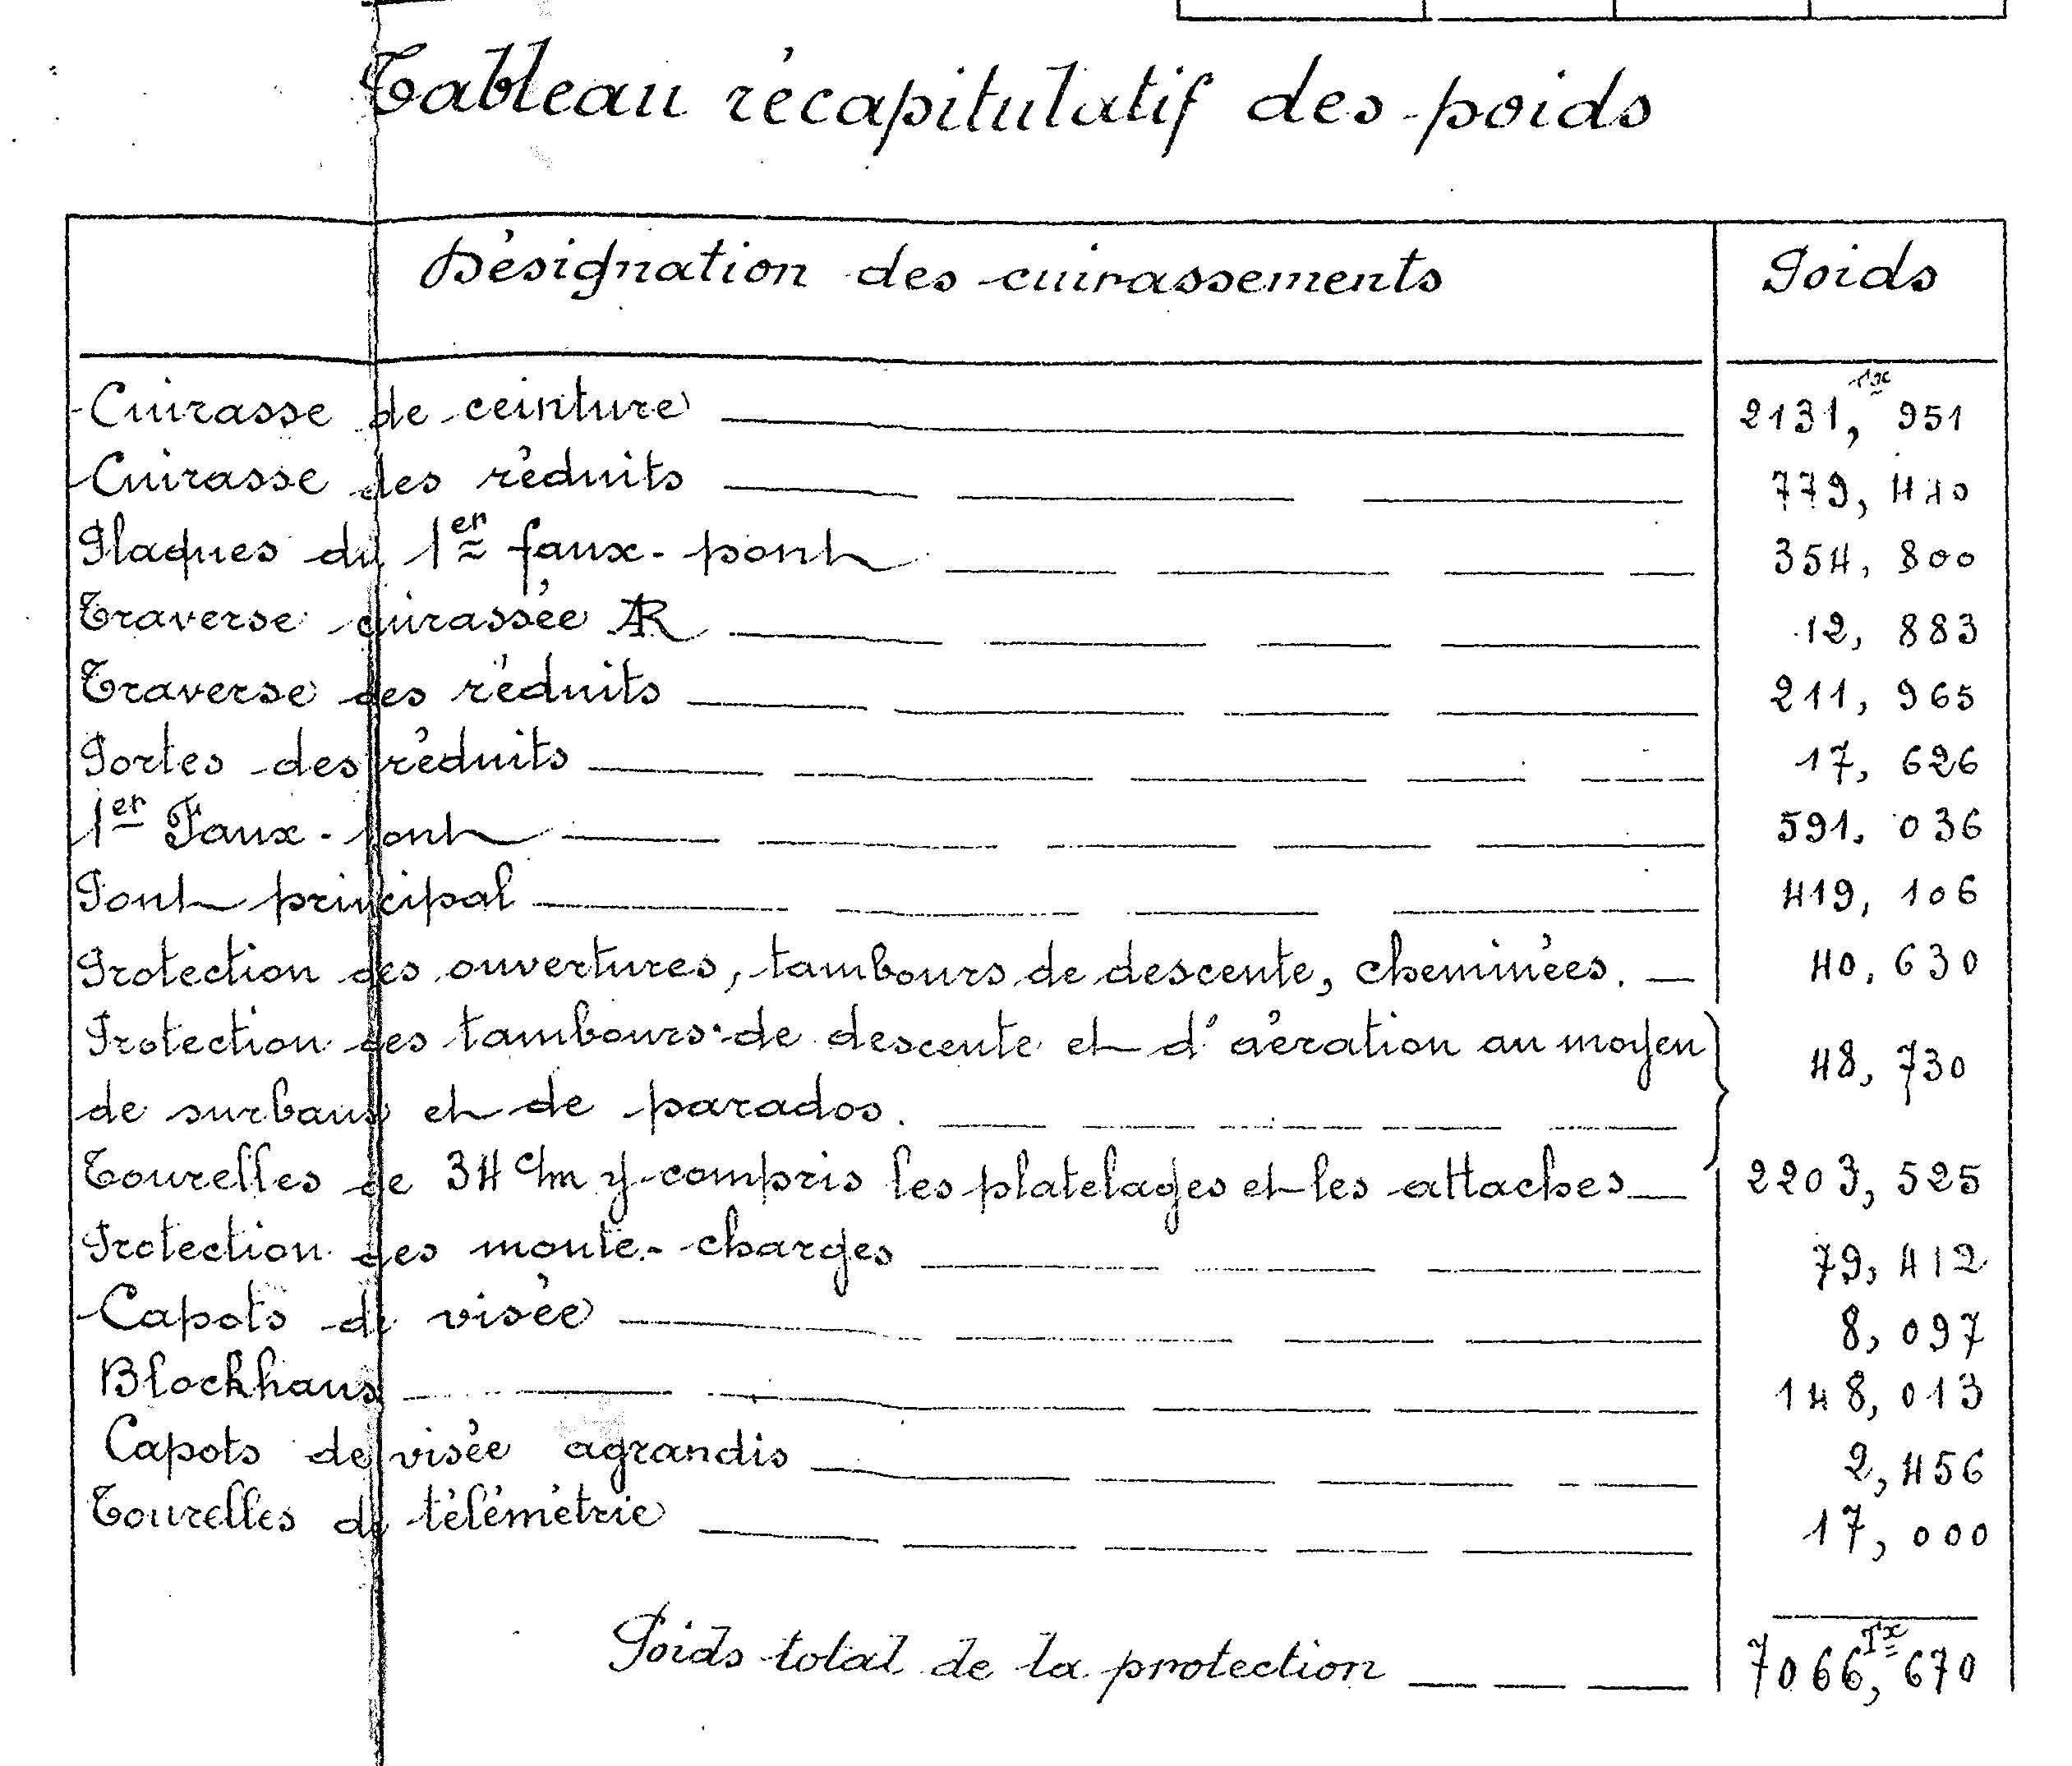 Tableau récapitulatif des poids
Désignation des cuirassements Poids
Cuirasse de ceinture 2131,Tx 951
Cuirasse des réduits 779, 440
Plaques du 1er faux-pont 354, 800
Traverse cuirassée AR 12, 883
Traverse des réduits 211, 965
Portes des réduits 17, 626
1er Faux-pont 591, 036
Pont principal 419, 106
Protection des ouvertures, tambours de descente, cheminées. 40, 630
Protection des tambours de descente et d'aération au moyen
de surbaux et de parados. 48, 730
Tourelles de 34 c/m y compris les platelages et les attaches 2203, 525
Protection des monte-charges 79, 412
Capots de visée 8, 097
Blockhaus 148, 013
Capots de visée agrandis 2, 456
Tourelles de télémétrie 17, 000
Poids total de la protection 7066,Tx 670